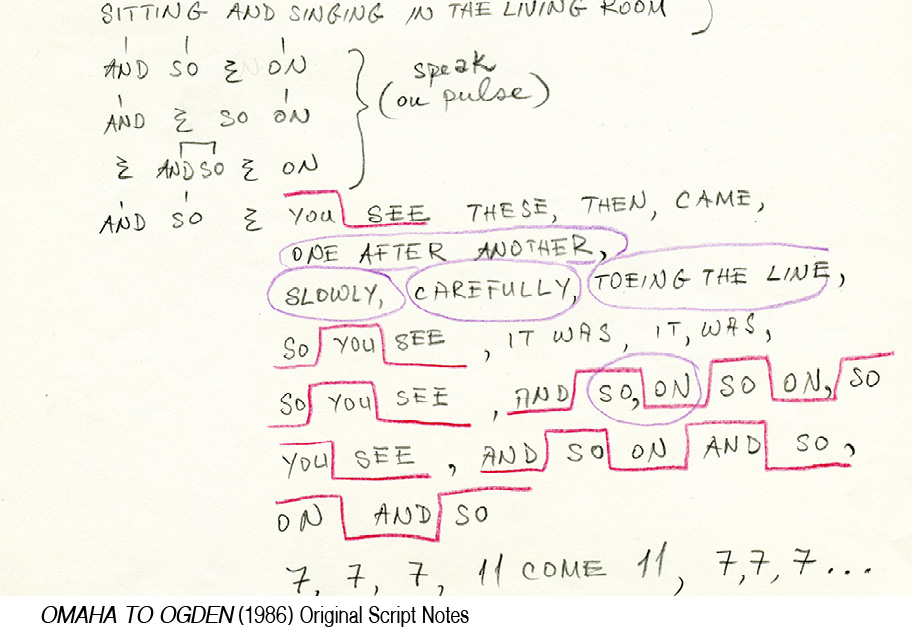 SITTING AND SINGING IN THE LIVING ROOM)
AND SO & ON
speak
AND & SO ON
(on pulse)
& AND SO & ON
AND SO & YOU SEE THESE, THEN, CAME,
ONE AFTER ANOTHER,
SLOWLY, CAREFULLY, TOEING THE LINE,
SO YOU SEE, IT WAS, IT, WAS,
SO YOU SEE, AND SO, ON SO ON, SO
YOU SEE, AND SO ON AND SO,
ON AND SO
7, 7, 7, 11 COME 11, 7, 7, 7...
OMAHA TO OGDEN (1986) Original Script Notes